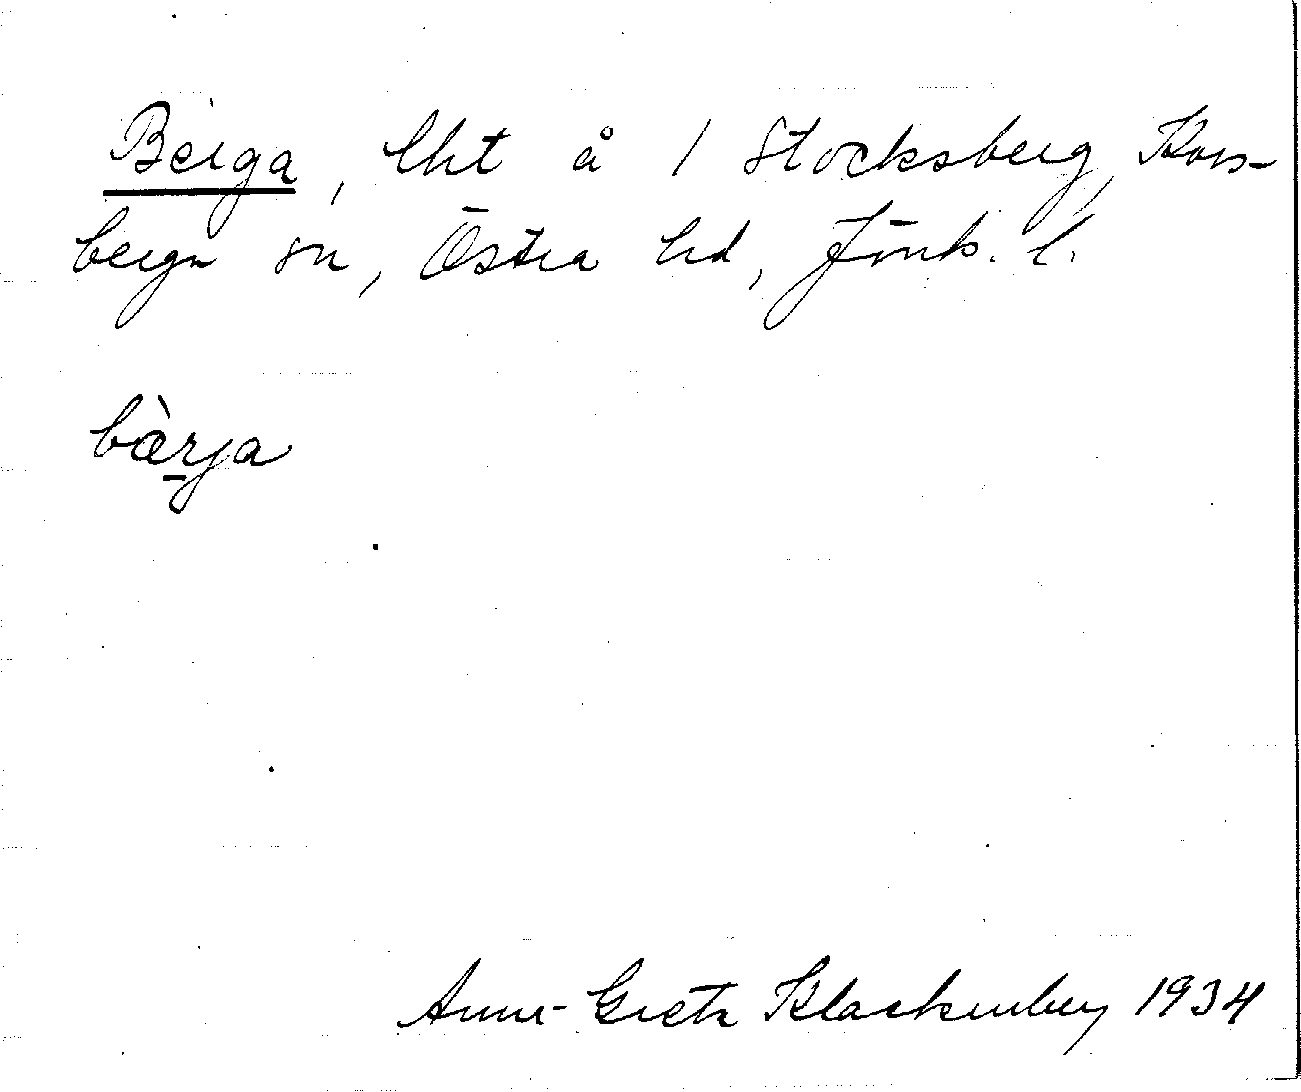 Berga, lht å 1 Stocksberg, Kors-
berga sn, Östra hd, Jönk. l.
bæ̀rja
Anna-Greta Klackenberg 1934